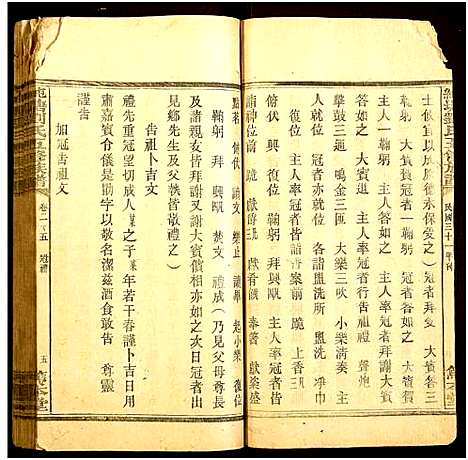 純塘劉氏五修族譜
民國三十一年
士攸宜以成厥德永保受之）冠者拜　大賓答三
鞠躬　大賓揖冠者一鞠躬　冠者答如之　大賓行
答如之　大賓退　主人率冠者行告祖禮　聲炮
擊鼓三通　鳴金三匝　大樂三吹　小樂清奏　主
人就位　冠者皆就位　詣盥洗所　盥洗　淨巾
復位　鞠躬　拜興　主人率冠者皆
俯伏　興　主人率冠者詣香案前　跪　上香
請神位前　獻肴饌　奉箸　獻粢盛
點茗　俯伏　讀文　樂止　讀　起小樂　復位
鞠躬　拜興　焚文　禮成（乃見父母尊長
及諸親友皆拜謝又謝大賓儐相亦如之大賓
見鄉先生及父執皆敬禮之）
告祖卜吉文
禮先重冠望切成人于某年若干春謹卜吉日用
肅嘉儀式是勘字以敬名潔茲酒食敢告　尊靈
謹告
加冠告祖文
純塘劉氏五修族譜
卷二之五　冠禮
五